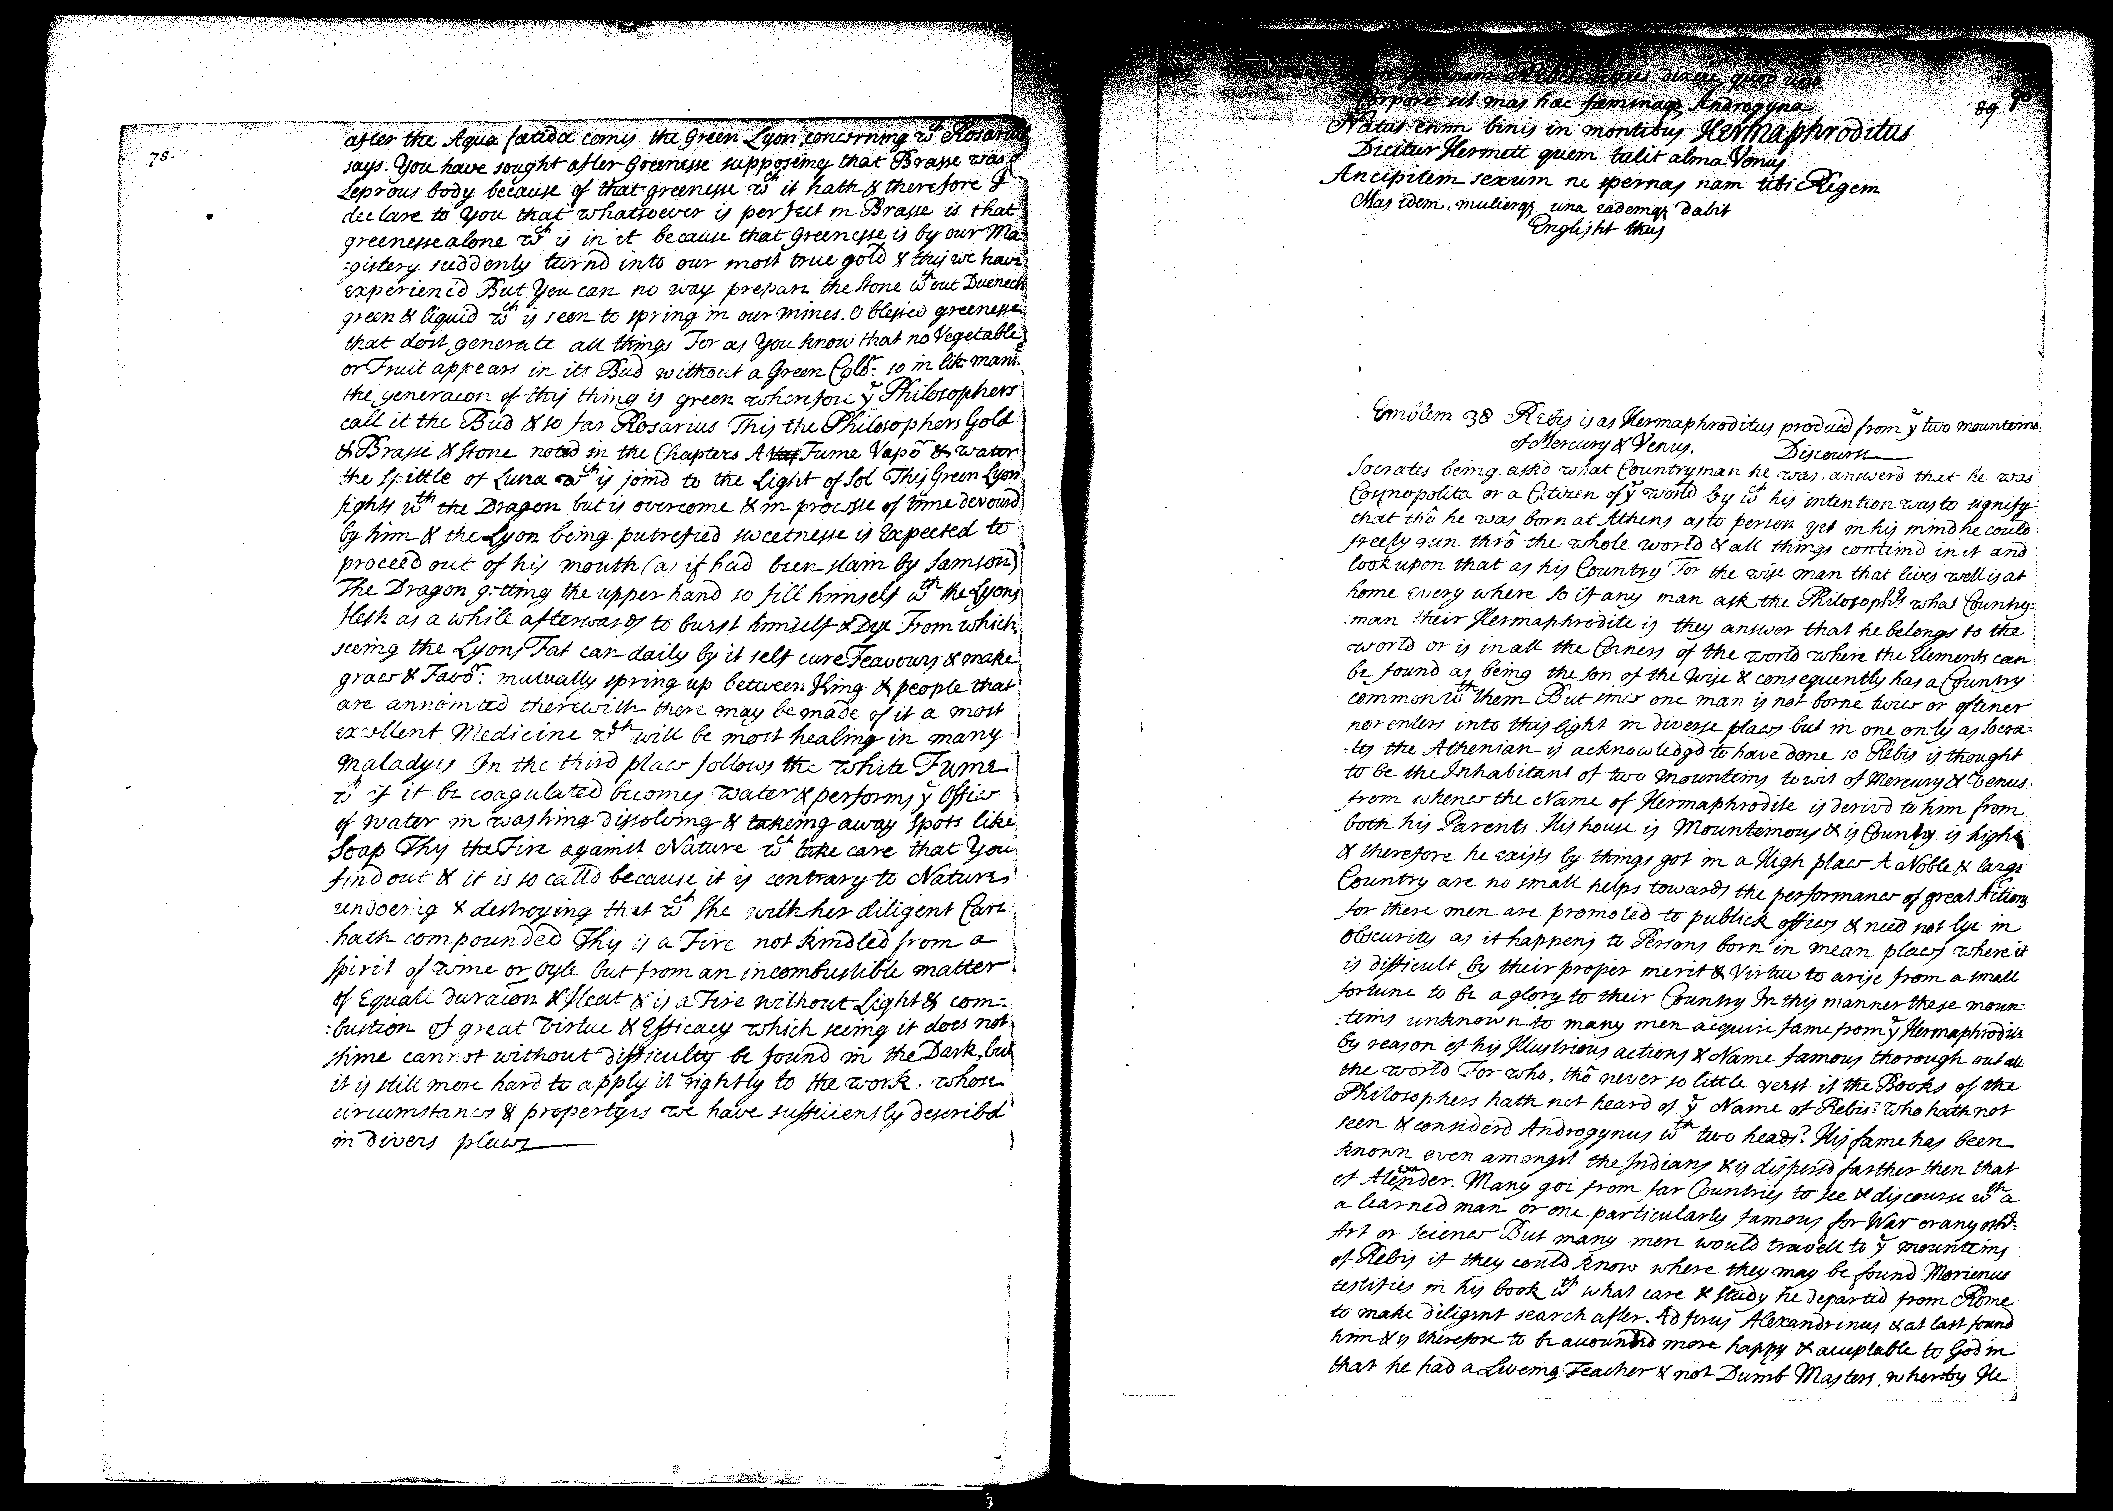 78.
after the Aqua fœtida comes the Green Lyon concerning wch Rosarius
says. You have sought after Greenesse supposeing that Brasse was a
Leprous body because of that greenesse wch it hath & therefore I
declare to You that whatsoever is perfect in Brasse is that
greenesse alone wch is in it because that greenesse is by our Ma
:gistery suddenly turnd into our most true gold & this we have
experienc'd But You can no way prepare the Stone wthout Duenech
green & liquid wch is seen to spring in our mines. O blessed greenesse
that dost generate all things For as You know that no Vegetable
or Fruit appears in its Bud without a Green Color: so in like manr
the generacon of this thing is green wherefore ye Philosophers
call it the Bud & so far Rosarius This the Philosophers Gold
& Brasse & Stone noted in the Chapters A Fume Vapor & water
the Spittle of Luna wch is joind to the Light of Sol This Green Lyon
fights wth the Dragon but is overcome & in processe of time devourd
by him & the Lyon being putrefied sweetnesse is Expected to
proceed out of his mouth (as if had been slain by Samson)
The Dragon getting the upper hand so fill himself wth the Lyons
flesh as a while afterwards to burst himself & Dye From which
seeing the Lyons Fat can daily by it self cure Feavours & make
grace & Favor: mutually spring up between King & people that
are annointed therewith there may be made of it a most
excellent Medicine wch will be most healing in many
maladyes In the third place follows the white Fume
wch if it be coagulated becomes water & performs ye Office
of water in washing dissolving & takeing away spots like
Soap This the Fire against Nature wch take care that You
find out & it is so calld because it is contrary to Nature
undoeing & destroying that wch she with her diligent Care
hath compounded This is a Fire not kindled from a
spirit of wine or oyle but from an incombustible matter
of Equall duracon & Heat & is a Fire without Light & com-
:bustion of great Virtue & Efficacy which seeing it does not
shine cannot without difficulty be found in the Dark, but
it is still more hard to apply it rightly to the work. whose
circumstances & propertyes we have sufficiently describd
in divers places
89
Corpore sit mas hæc fæminaqz Androgyna
Natus enim binis in montibus Hermaphroditus
Dicitur Hermeti quem tulit alma Venus
Ancipitem sexum ne spernas nam tibi Regem
Mas idem, mulierqz una eademqz dabit
English thus
Emblem 38 Rebis is as Hermaphroditus produced from ye two mounteins
of Mercury & Venus. Discourse
Socrates being askd what Countryman he was, answerd that he was
Cosmopolita or a Citizen of ye world by wch his intention was to signify
that tho he was born at Athens as to person yet in his mind he could
freely run thro the whole world & all things conteind in it and
look upon that as his Country For the wise man that lives well is at
home every where So if any man ask the Philosophrs what Country-
man their Hermaphrodite is they answer that he belongs to the
world or is in all the Corners of the world where the Elements can
be found as being the son of the Wise & consequently has a Country
common wth them But since one man is not borne twice or oftener
nor enters into this light in diverse places but in one only as Socra-
:tes the Athenian is acknowledgd to have done so Rebis is thought
to be the Inhabitant of two Mounteins to wit of Mercury & Venus.
from whence the Name of Hermaphrodite is derivd to him from
both his Parents. His house is Mounteinous & is Country is high
& therefore he exists by things got in a High place A Noble & large
Country are no small helps towards the performance of great Actions
for these men are promoted to publick offices & need not lye in
obscurity as it happens to Persons born in mean places where it
is difficult by their proper merit & Virtue to arise from a small
fortune to be a glory to their Country In this manner these moun-
:teins unknown to many men acquire fame from ye Hermaphrodite
by reason of his Illustrious actions & Name famous thorough out all
the world For who, tho never so little verst it the Books of the
Philosophers hath not heard of ye Name of Rebis? Who hath not
seen & considerd Androgynus wth two heads? His fame has been
known even amongst the Indians & is dispersd farther then that
of Alexander. Many goe from far Countries to see & discourse wth a
a learned man or one particularly famous for War or any othr
Art or Science But many men would travell to ye mounteins
of Rebis if they could know where they may be found Morienus
testifies in his book wth what care & study he departed from Rome
to make diligent search after Adferus Alexandrinus & at last found
him & is therefore to be accounted more happy & acceptable to God in
that he had a Liveing Teacher & not Dumb Masters. whereby He